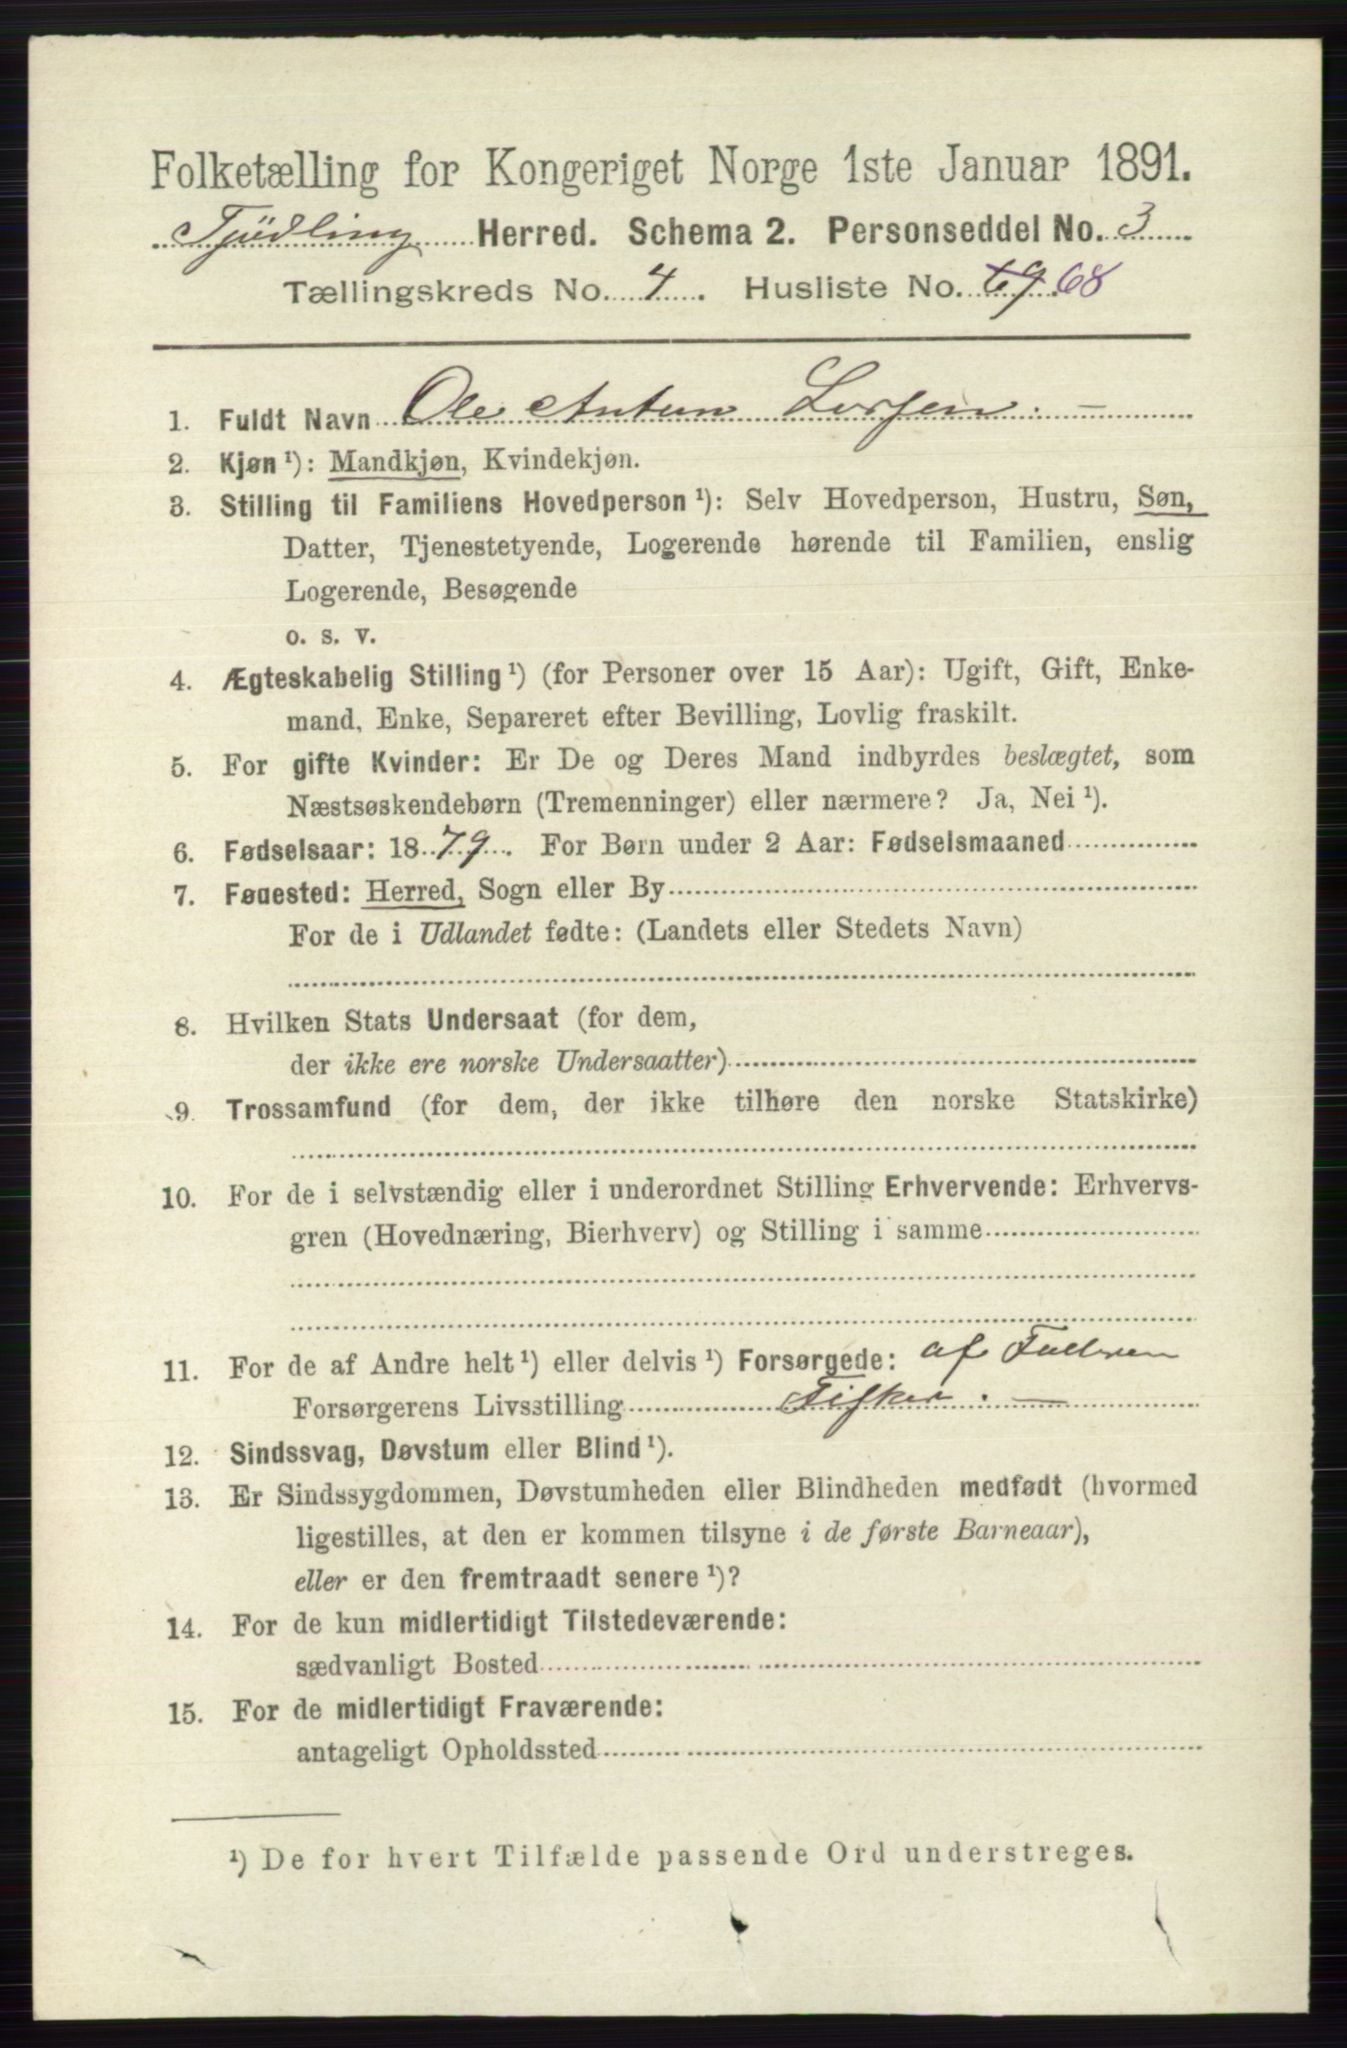 Folketælling for Kongeriget Norge 1ste Januar 1891.
Tjödling Herred. Schema 2. Personseddel No. 3
Tællingskreds No. 4. Husliste No. 69. 68
1. Fuldt Navn Ole Anton Larsen. —
2. Kjøn ¹): Mandkjøn, Kvindekjøn.
3. Stilling til Familiens Hovedperson ¹): Selv Hovedperson, Hustru, Søn,
Datter, Tjenestetyende, Logerende hørende til Familien, enslig
Logerende, Besøgende
o. s. v.
4. Ægteskabelig Stilling ¹) (for Personer over 15 Aar): Ugift, Gift, Enke-
mand, Enke, Separeret efter Bevilling, Lovlig fraskilt.
5. For gifte Kvinder: Er De og Deres Mand indbyrdes beslægtet, som
Næstsøskendebørn (Tremenninger) eller nærmere? Ja, Nei ¹).
6. Fødselsaar: 1879. For Børn under 2 Aar: Fødselsmaaned
7. Fødested: Herred, Sogn eller By
For de i Udlandet fødte: (Landets eller Stedets Navn)
8. Hvilken Stats Undersaat (for dem,
der ikke ere norske Undersaatter)
9. Trossamfund (for dem, der ikke tilhøre den norske Statskirke)
10. For de i selvstændig eller i underordnet Stilling Erhvervende: Erhvervs-
gren (Hovednæring, Bierhverv) og Stilling i samme
11. For de af Andre helt ¹) eller delvis ¹) Forsørgede: af Faderen
Forsørgerens Livsstilling Fisker. —
12. Sindssvag, Døvstum eller Blind ¹).
13. Er Sindssygdommen, Døvstumheden eller Blindheden medfødt (hvormed
ligestilles, at den er kommen tilsyne i de første Barneaar),
eller er den fremtraadt senere ¹)?
14. For de kun midlertidigt Tilstedeværende:
sædvanligt Bosted
15. For de midlertidigt Fraværende:
antageligt Opholdssted
¹) De for hvert Tilfælde passende Ord understreges.